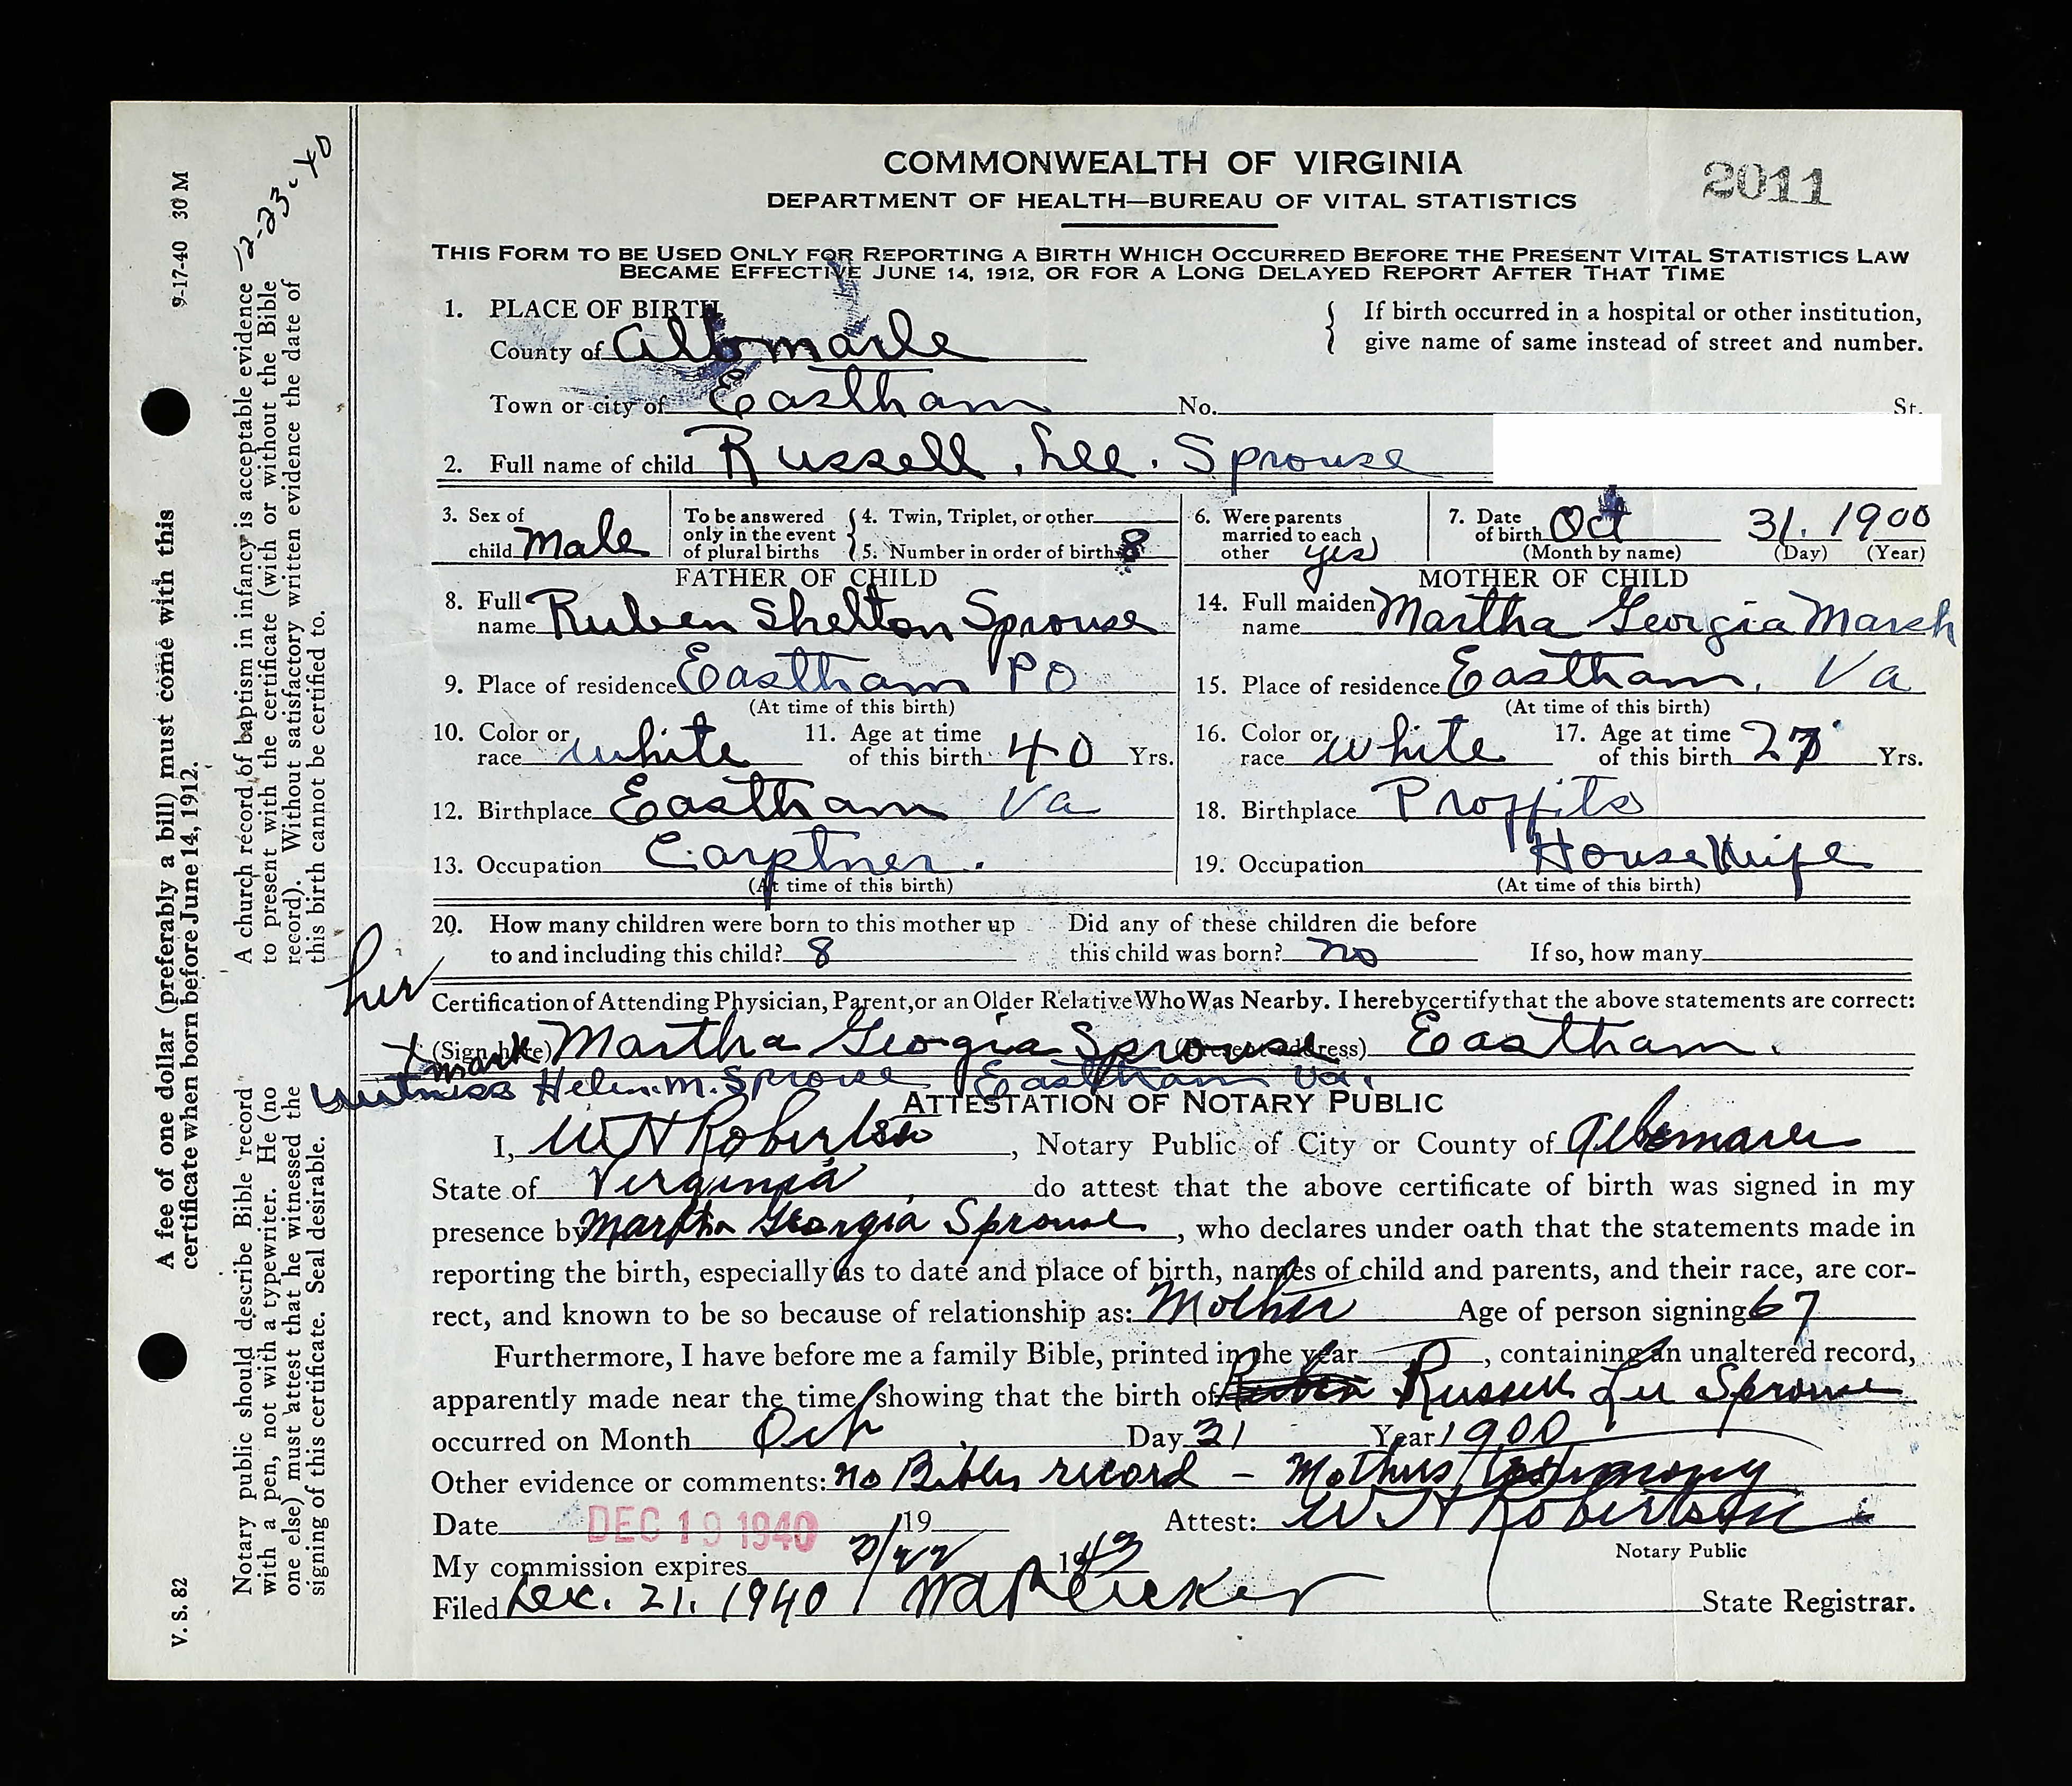 COMMONWEALTH OF VIRGINIA
2011
DEPARTMENT OF HEALTH—BUREAU OF VITAL STATISTICS
THIS FORM TO BE USED ONLY FOR REPORTING A BIRTH WHICH OCCURRED BEFORE THE PRESENT VITAL STATISTICS LAW
BECAME EFFECTIVE JUNE 14, 1912, OR FOR A LONG DELAYED REPORT AFTER THAT TIME
1. PLACE OF BIRTH
If birth occurred in a hospital or other institution,
give name of same instead of street and number.
County of Albmarle
Town or city of Eastham No. St.
2. Full name of child Russell Lee. Sprouse
3. Sex of child Male
To be answered only in the event of plural births
4. Twin, Triplet, or other
5. Number in order of birth 8
6. Were parents married to each other yes
7. Date of birth Oct 31. 1900
(Month by name) (Day) (Year)
FATHER OF CHILD
8. Full name Ruben Shelton Sprouse
9. Place of residence Eastham PO
(At time of this birth)
10. Color or race white 11. Age at time of this birth 40 Yrs.
12. Birthplace Eastham Va
13. Occupation Carptner.
(At time of this birth)
MOTHER OF CHILD
14. Full maiden name Martha Georgia Marsh
15. Place of residence Eastham, Va
(At time of this birth)
16. Color or race white 17. Age at time of this birth 27 Yrs.
18. Birthplace Proffits
19. Occupation House Wife
(At time of this birth)
20. How many children were born to this mother up to and including this child? 8
Did any of these children die before this child was born? no If so, how many
Certification of Attending Physician, Parent, or an Older Relative Who Was Nearby. I hereby certify that the above statements are correct:
her
X mark
(Sign here) Martha Georgia Sprouse (Present address) Eastham.
witness Helen. M. Sprouse Eastham Va.
ATTESTATION OF NOTARY PUBLIC
I, W H Robertson, Notary Public of City or County of Albemarle
State of Virginia, do attest that the above certificate of birth was signed in my
presence by Martha Georgia Sprouse, who declares under oath that the statements made in
reporting the birth, especially as to date and place of birth, names of child and parents, and their race, are cor-
rect, and known to be so because of relationship as: Mother Age of person signing 67
Furthermore, I have before me a family Bible, printed in the year , containing an unaltered record,
apparently made near the time, showing that the birth of Ruben Russell Lee Sprouse
occurred on Month Oct Day 31 Year 1900
Other evidence or comments: no Bible record – Mothers Testimony
Date DEC 19 1940 19 Attest: W H Robertson
Notary Public
My commission expires 2/22 1943
Filed Dec. 21. 1940 State Registrar.
V. S. 82 9-17-40 30 M
A fee of one dollar (preferably a bill) must come with this
certificate when born before June 14, 1912.
Notary public should describe Bible record
with a pen, not with a typewriter. He (no
one else) must attest that he witnessed the
signing of this certificate. Seal desirable.
A church record of baptism in infancy is acceptable evidence
to present with the certificate (with or without the Bible
record). Without satisfactory written evidence the date of
this birth cannot be certified to.
12-23-40